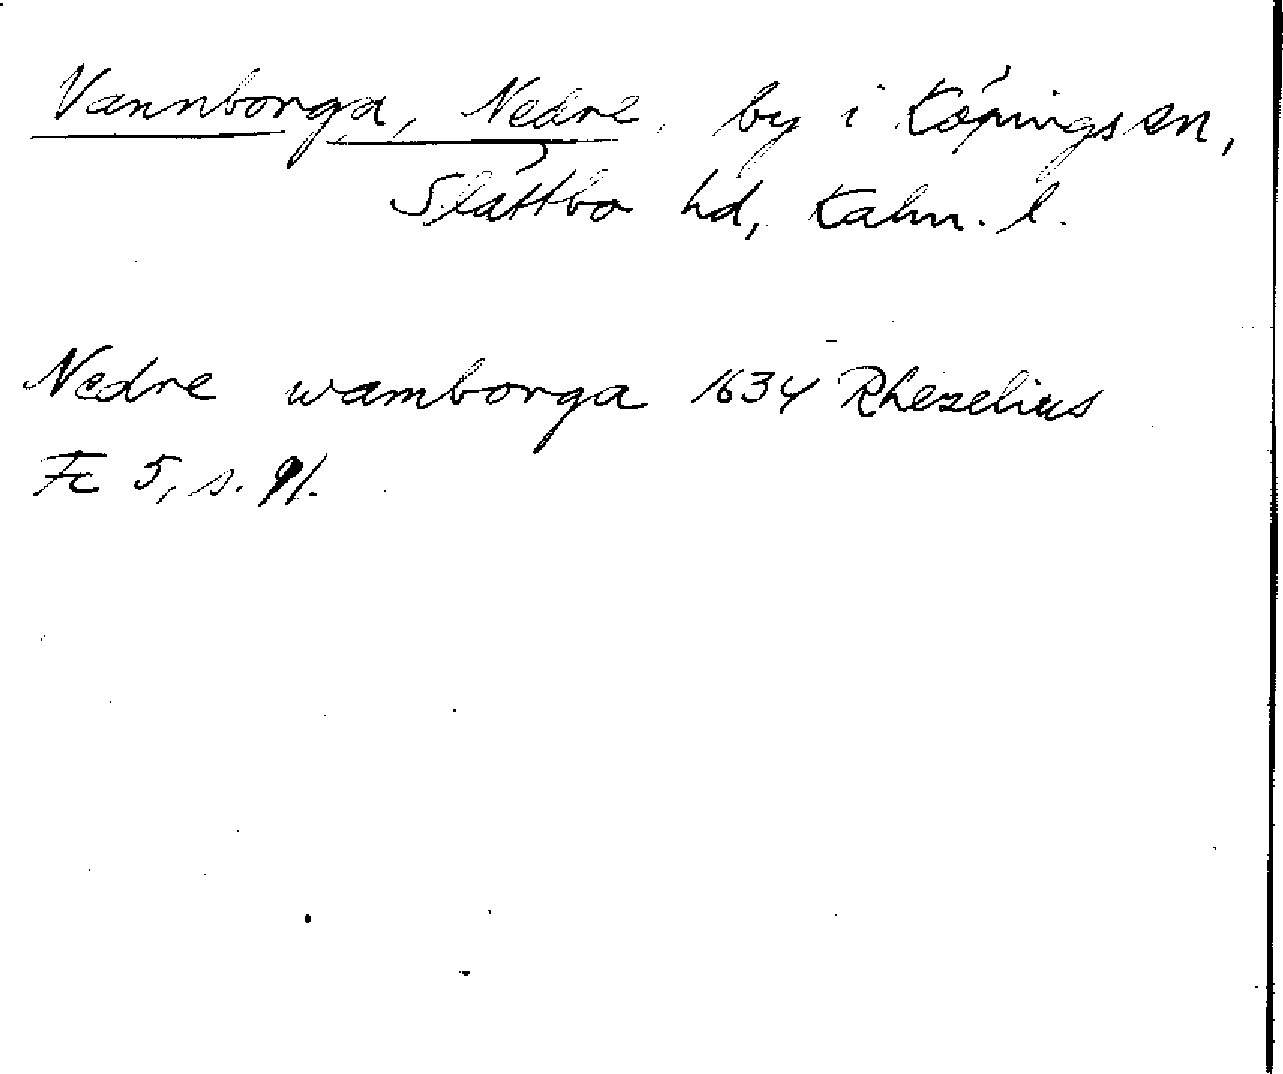 Vannborga, Nedre, by i Köpings sn,
Slättbo hd, Kalm. l.
Nedre wamborga 1634 Rhezelius
Fc 5, s. 91.